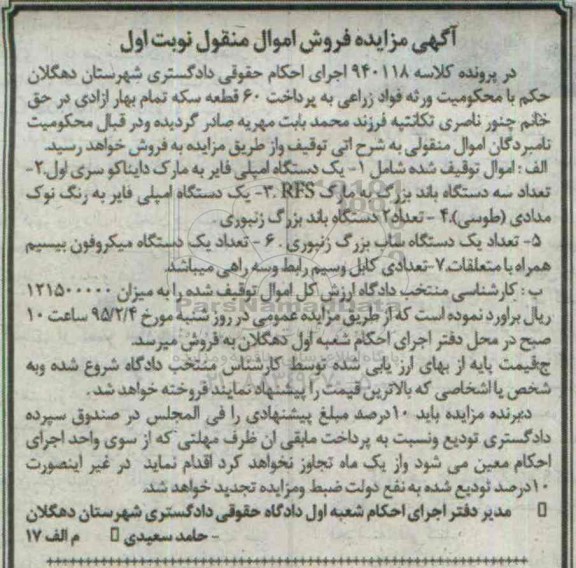 آگهی مزایده فروش اموال منقول نوبت اول
در پرونده کلاسه ۹۴۰۱۱۸ اجرای احکام حقوقی دادگستری شهرستان دهگلان
حکم با محکومیت ورثه فواد زراعی به پرداخت ۶۰ قطعه سکه تمام بهار ازادی در حق
خانم چنور ناصری تکانتپه فرزند محمد بابت مهریه صادر گردیده ودر قبال محکومیت
نامبردگان اموال منقولی به شرح اتی توقیف واز طریق مزایده به فروش خواهد رسید.
الف : اموال توقیف شده شامل ۱- یک دستگاه امپلی فایر به مارک دایناکو سری اول.۲-
تعداد سه دستگاه باند بزرگ با مارک RFS .۳- یک دستگاه امپلی فایر به رنگ نوک
مدادی (طوسی).۴- تعداد۲ دستگاه باند بزرگ زنبوری.
۵- تعداد یک دستگاه ساب بزرگ زنبوری .۶- تعداد یک دستگاه میکروفون بیسیم
همراه با متعلقات.۷-تعدادی کابل وسیم رابط وسه راهی میباشد.
ب : کارشناسی منتخب دادگاه ارزش کل اموال توقیف شده را به میزان ۱۲۱۵۰۰۰۰۰
ریال براورد نموده است که از طریق مزایده عمومی در روز شنبه مورخ ۹۵/۲/۴ ساعت ۱۰
صبح در محل دفتر اجرای احکام شعبه اول دهگلان به فروش میرسد.
ج:قیمت پایه از بهای ارز یابی شده توسط کارشناس منتخب دادگاه شروع شده وبه
شخص یا اشخاصی که بالاترین قیمت را پیشنهاد نمایند فروخته خواهد شد.
دبرنده مزایده باید ۱۰درصد مبلغ پیشنهادی را فی المجلس در صندوق سپرده
دادگستری تودیع ونسبت به پرداخت مابقی ان ظرف مهلتی که از سوی واحد اجرای
احکام معین می شود واز یک ماه تجاوز نخواهد کرد اقدام نماید در غیر اینصورت
۱۰درصد تودیع شده به نفع دولت ضبط ومزایده تجدید خواهد شد.
مدیر دفتر اجرای احکام شعبه اول دادگاه حقوقی دادگستری شهرستان دهگلان
- حامد سعیدی م الف ۱۷